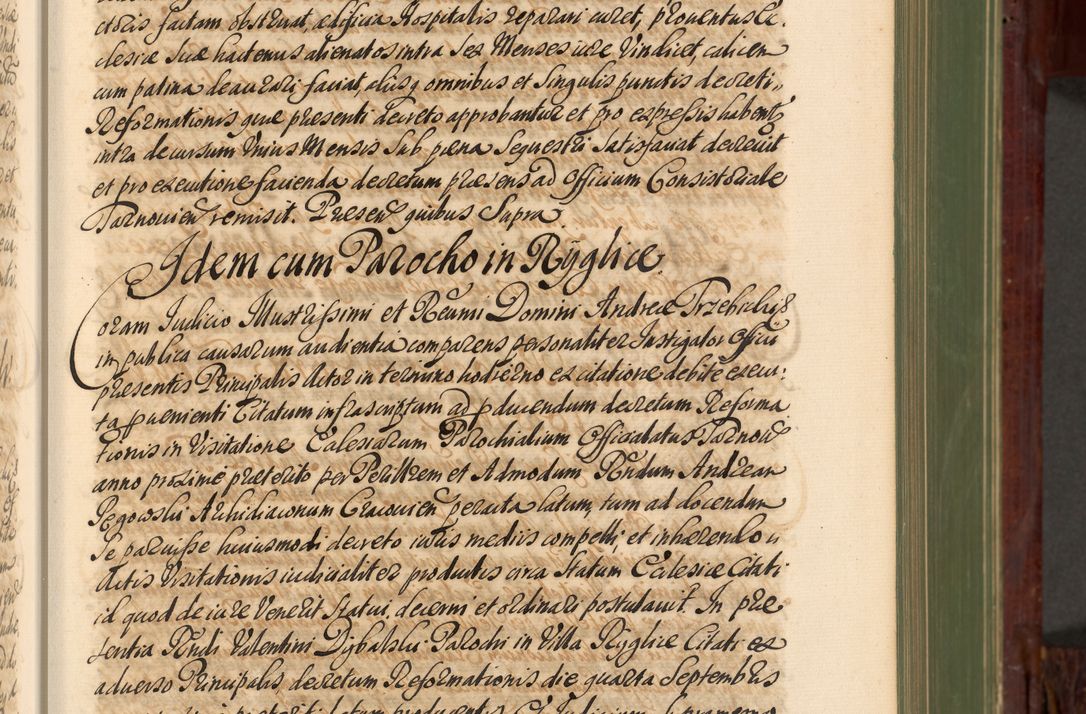 ctoris factam obstruat, ædificia Hospitalis reparari curet, proventus Ec.
clesiæ Suæ hactenus alienatos intra Sex Menses iure Vindicet, calicem
cum patina deaurari faciat, aliisq omnibus et Singulis punctis decreti,,
Reformationis quæ præsenti decreto approbantur et pro expressis habent
intra decursum Unius Mensis Sub pæna Sequestri Satisfaciat decrevit
et pro executione facienda decretum præsens ad Officium Consistoriale
Tarnovien remisit. Præsen quibus Supra
Idem cum Parocho in Ryglice
Coram Iudicio Illustrissimi et Reumi Domini Andreæ Trzebicky
in publica causarum audientia comparens personaliter Instigator Officii
præsentis Principalis Actor in termino hodierno ex citatione debite execu:
ta pvenienti Citatum infrascriptum ad pducendum decretum Reforma
tionis in Visitatione Ecclesiarum Parochialium Officialatus Tarnovien
anno proxime præterito per Perillrem et Admodum Rndum Andream
Pegowski Archidiaconum Cracovien peracta latum, tum ad docendum
Se paruisse huiusmodi decreto iuris mediis compelli, et inhærendo
Actis Visitationis iudicialiter productis circa Statum Ecclesiæ Citati
id quod de iure Venerit Statui, decerni et ordinari postulavit. In præ
sentia Rndi Valentini Dybalski Parochi in Villa Ryglice Citati ex
adverso Principalis, decretum Reformationis die quarta Septembris
latum producentis Et Iudicium